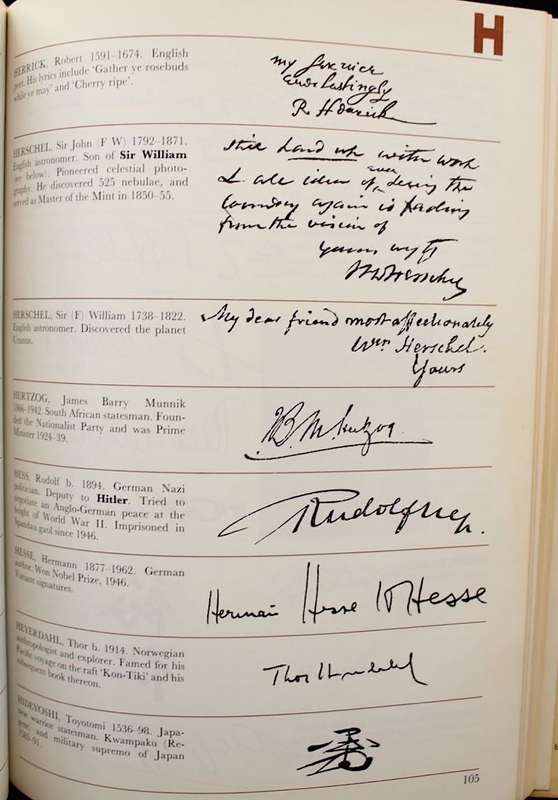 H
HERRICK, Robert 1591–1674. English
poet. His lyrics include 'Gather ye rosebuds
while ye may' and 'Cherry ripe'.
my service
everlastingly
R Herrick
HERSCHEL, Sir John (F W) 1792–1871.
English astronomer. Son of Sir William
(see below). Pioneered celestial photo-
graphy. He discovered 525 nebulae, and
served as Master of the Mint in 1850–55.
still hard up with work
& all idea of ever seeing the
Country again is fading
from the vision of
yours
Herschel
HERSCHEL, Sir (F) William 1738–1822.
English astronomer. Discovered the planet
Uranus.
My dear friend most affectionately
Wm Herschel.
Yours
HERTZOG, James Barry Munnik
1866–1942. South African statesman. Foun-
ded the Nationalist Party and was Prime
Minister 1924–39.
JBM Hertzog
HESS, Rudolf b. 1894. German Nazi
politician. Deputy to Hitler. Tried to
negotiate an Anglo-German peace at the
height of World War II. Imprisoned in
Spandau gaol since 1946.
Rudolf Hess.
HESSE, Hermann 1877–1962. German
author. Won Nobel Prize, 1946.
Variant signatures.
Hermann Hesse H Hesse
HEYERDAHL, Thor b. 1914. Norwegian
anthropologist and explorer. Famed for his
Pacific voyage on the raft 'Kon-Tiki' and his
subsequent book thereon.
Thor Heyerdahl
HIDEYOSHI, Toyotomi 1536–98. Japa-
nese warrior statesman. Kwampaku (Re-
gent) and military supremo of Japan
1585–91.
105